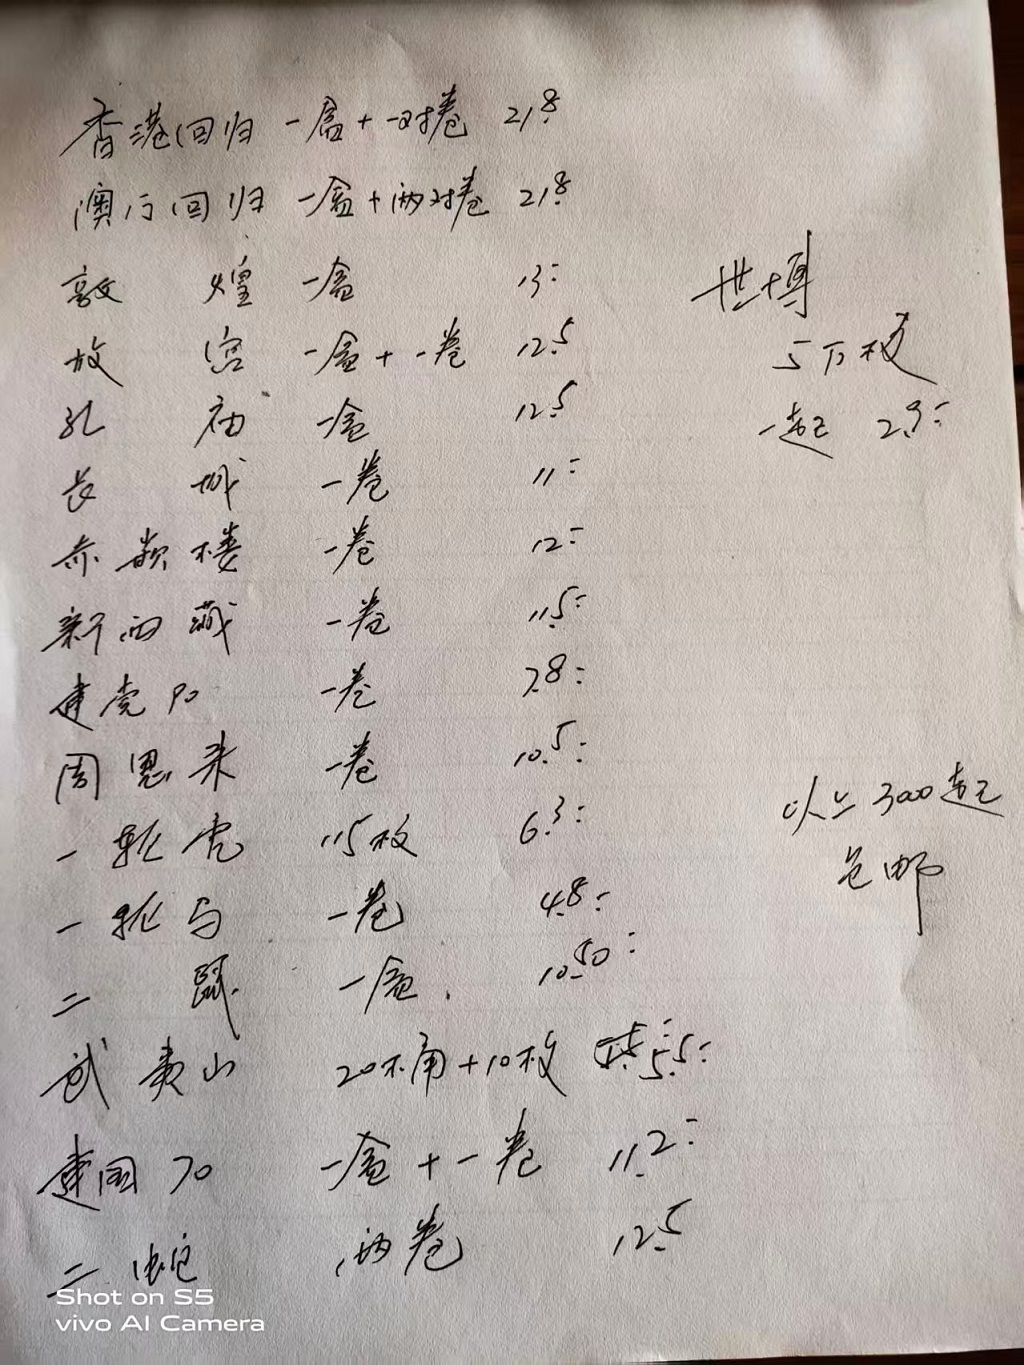 香港回归 一盒+一对卷 21.8
澳门回归 一盒+两对卷 21.8
敦煌 一盒 13=
故宫 一盒+一卷 12.5
孔庙 一盒 12.5
长城 一卷 11=
赤嵌楼 一卷 12=
新西藏 一卷 11.5=
建党90 一卷 7.8=
周恩来 一卷 10.5=
一轮虎 115枚 6.3=
一轮马 一卷 4.8=
二鼠 一盒 10.50=
武夷山 20不角+10枚 5.5=
建国70 一盒+一卷 11.2=
二蛇 两卷 12.5
世博
5万枚
一起 2.9=
以上3000起
包邮
Shot on S5
vivo AI Camera